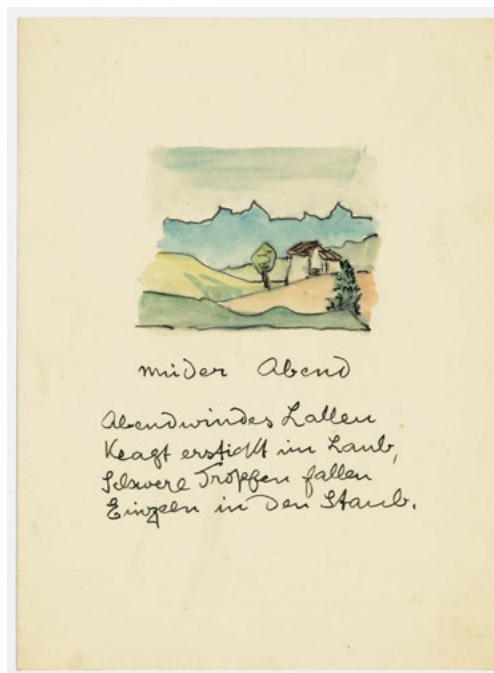 müder Abend
Abendwindes Lallen
Klagt erstickt im Laub,
Schwere Tropfen fallen
Einzeln in den Staub.